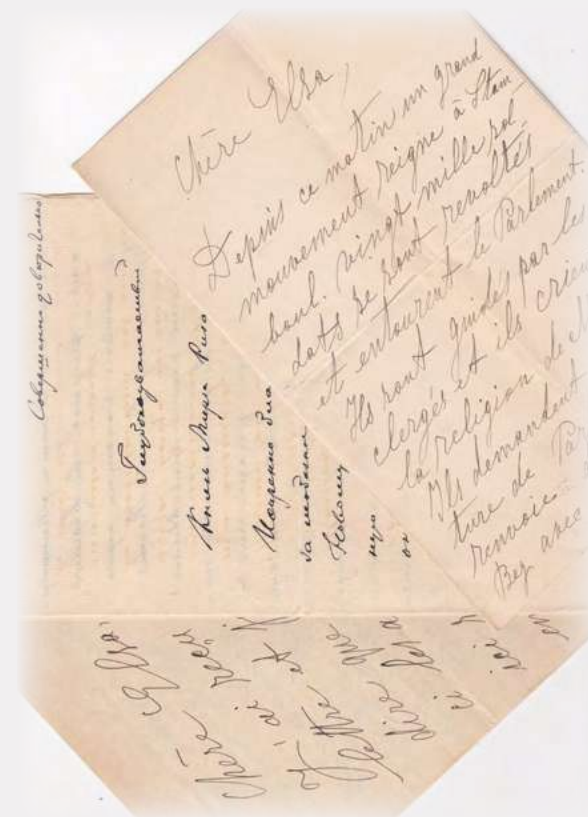 Chère Elsa,
Depuis ce matin un grand
mouvement reigne à Stam-
boul. Vingt mille sol-
dats se sont revoltés
et entourent le Parlement.
Ils sont guidés par les
clergés et ils crient
la religion de
Ils demandent
ture de Par
renvoie
Bey avec
Совершенно доверительно
Глубокоуважаемый
Князь Мирза Риза
Искренно бла
Новому
Chère Elsa,
ai reçu
lettre
dire que